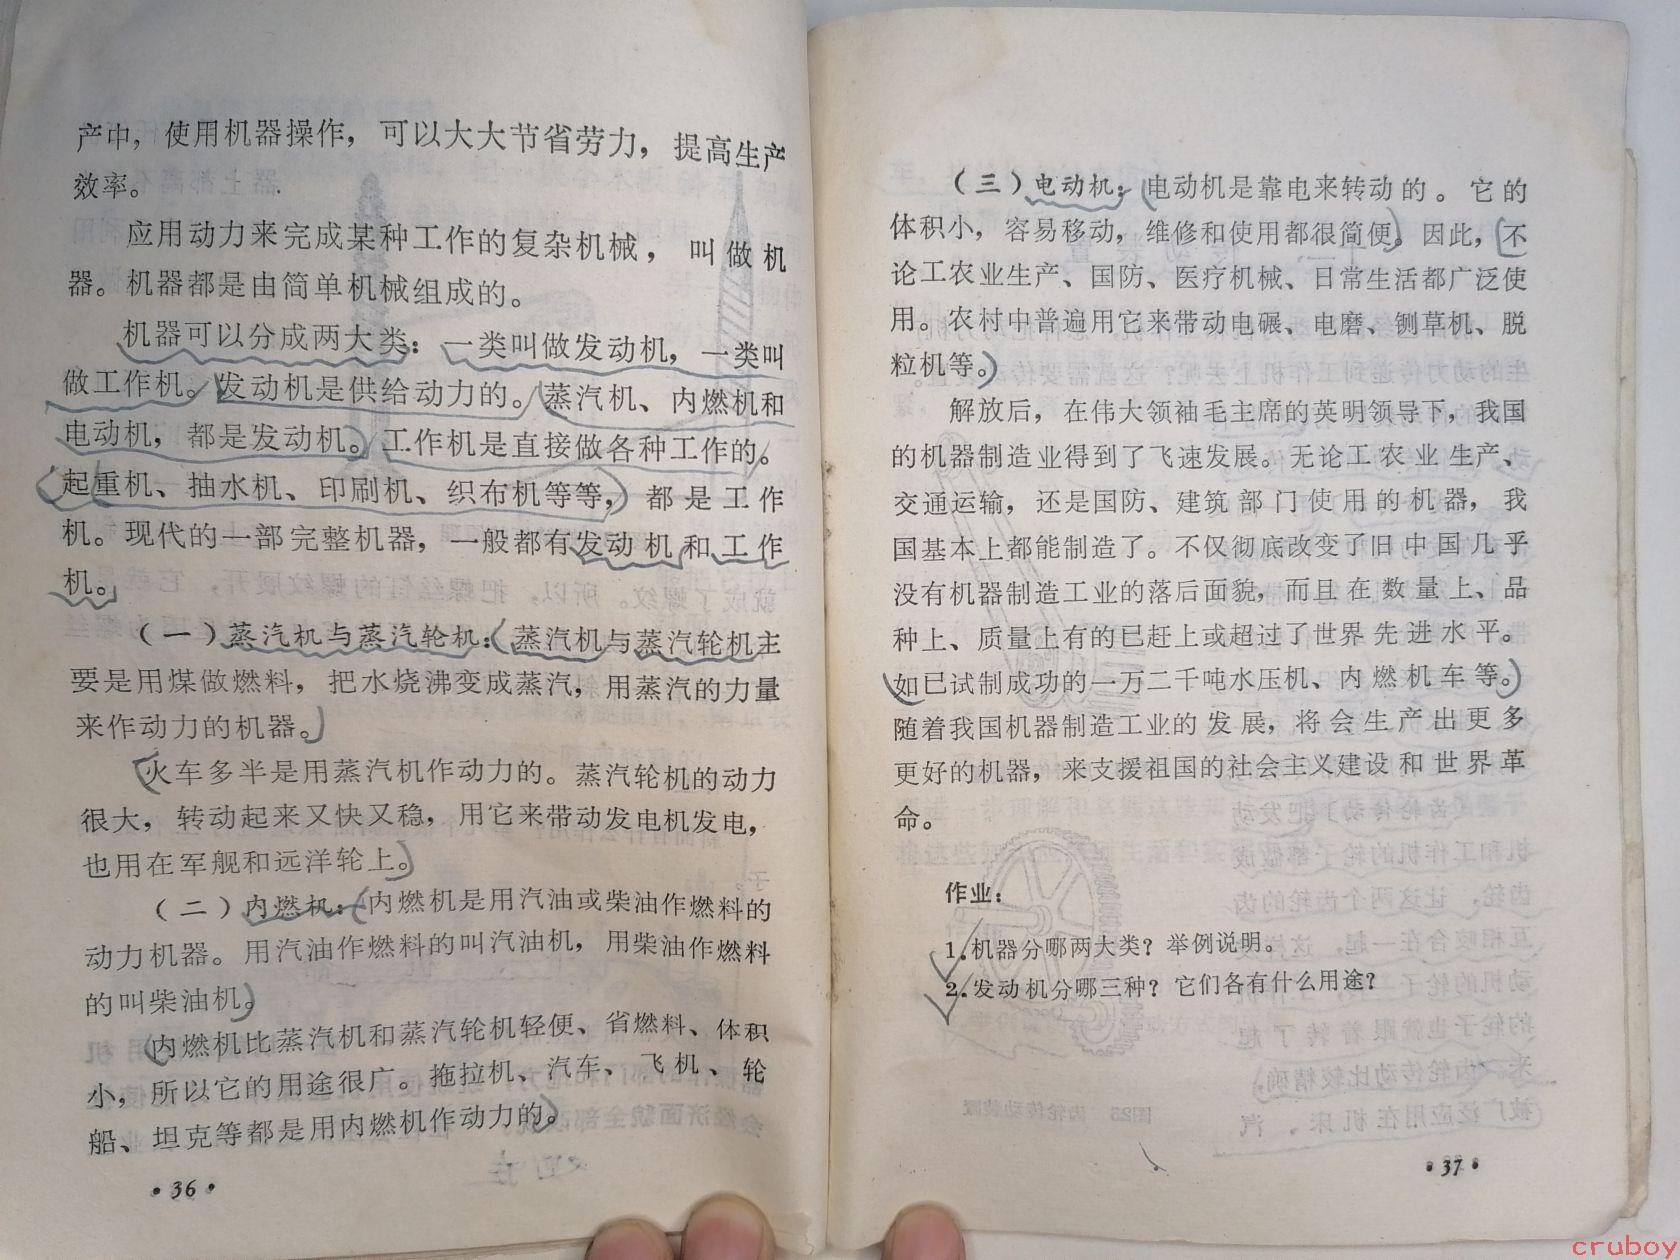 产中，使用机器操作，可以大大节省劳力，提高生产
效率。
应用动力来完成某种工作的复杂机械，叫做机
器。机器都是由简单机械组成的。
机器可以分成两大类：一类叫做发动机，一类叫
做工作机。发动机是供给动力的。蒸汽机、内燃机和
电动机，都是发动机。工作机是直接做各种工作的。
起重机、抽水机、印刷机、织布机等等，都是工作
机。现代的一部完整机器，一般都有发动机和工作
机。
（一）蒸汽机与蒸汽轮机：蒸汽机与蒸汽轮机主
要是用煤做燃料，把水烧沸变成蒸汽，用蒸汽的力量
来作动力的机器。
火车多半是用蒸汽机作动力的。蒸汽轮机的动力
很大，转动起来又快又稳，用它来带动发电机发电，
也用在军舰和远洋轮上。
（二）内燃机：内燃机是用汽油或柴油作燃料的
动力机器。用汽油作燃料的叫汽油机，用柴油作燃料
的叫柴油机。
内燃机比蒸汽机和蒸汽轮机轻便、省燃料、体积
小，所以它的用途很广。拖拉机、汽车、飞机、轮
船、坦克等都是用内燃机作动力的。
·36·
（三）电动机：电动机是靠电来转动的。它的
体积小，容易移动，维修和使用都很简便。因此，不
论工农业生产、国防、医疗机械、日常生活都广泛使
用。农村中普遍用它来带动电碾、电磨、铡草机、脱
粒机等。
解放后，在伟大领袖毛主席的英明领导下，我国
的机器制造业得到了飞速发展。无论工农业生产、
交通运输，还是国防、建筑部门使用的机器，我
国基本上都能制造了。不仅彻底改变了旧中国几乎
没有机器制造工业的落后面貌，而且在数量上、品
种上、质量上有的已赶上或超过了世界先进水平。
如已试制成功的一万二千吨水压机、内燃机车等。
随着我国机器制造工业的发展，将会生产出更多
更好的机器，来支援祖国的社会主义建设和世界革
命。
作业：
1.机器分哪两大类？举例说明。
2.发动机分哪三种？它们各有什么用途？
·37·
cruboy